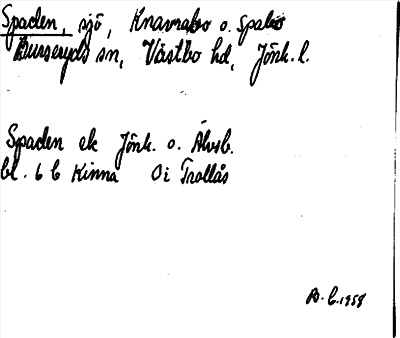 Spaden, sjö, Knavrabo o. Spabo
Burseryds sn, Västbo hd, Jönk. l.
Spaden ek Jönk. o. Älvsb.
bl. 6 b Kinna Oi Trollås
1958